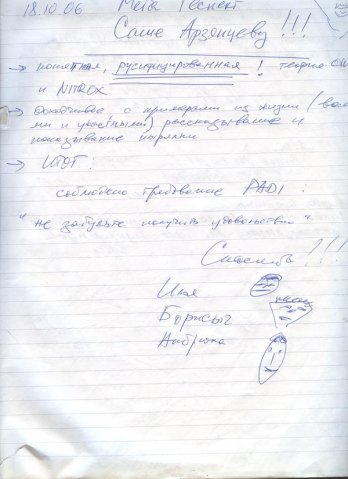 18.10.06 Мега Респект
Саше Арзянцеву !!!
→ понятная, русифицированная ! теория
и NITROX
→ с примерами из жизни
рассказывание и
показывание
→ ИТОГ:
соблюдено требование PADI:
"не забудьте получить удовольствие".
Спасибо !!!
Илья
Борисыч